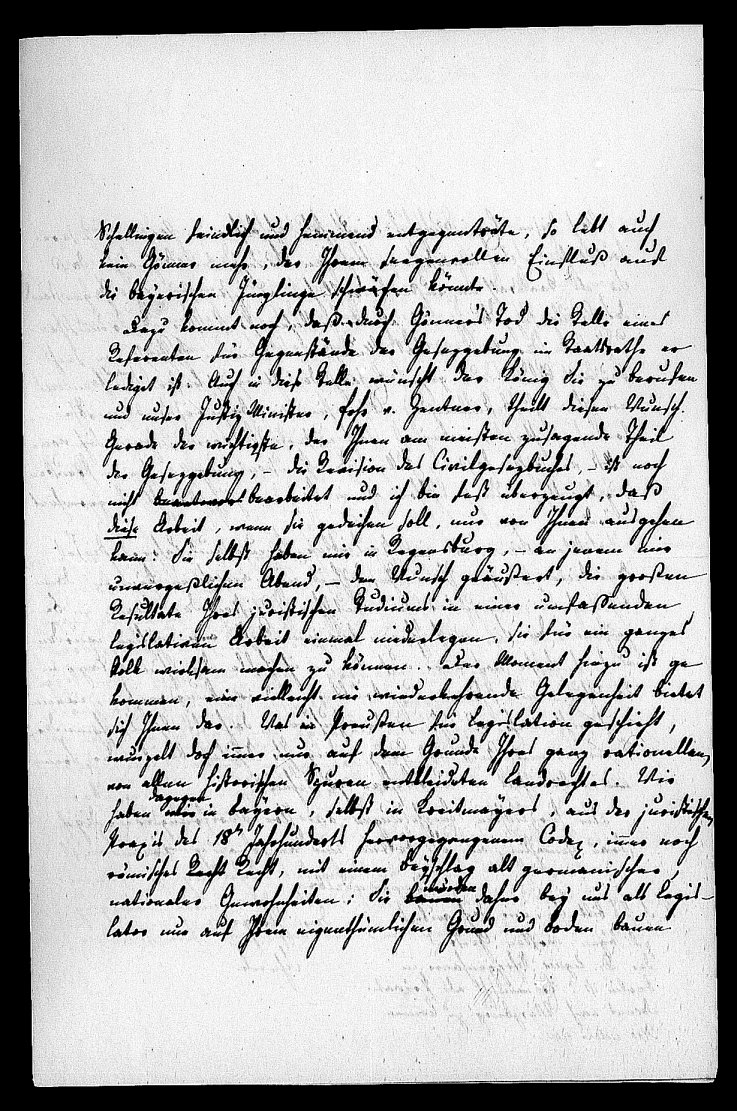 Schellingen feindlich und hemmend entgegenträte, so lebt auch
kein Gönner mehr, der Ihrem seegenvollen Einfluß auf
die bayerischen Jünglinge schwächen könnte.
Dazu kommt noch, daß durch Gönner's Tod die Stelle eines
Referenten für Gegenstände der Gesezgebung im Staatsrathe er
lediget ist. Auch in diese Stelle wünscht der König Sie zu berufen
und unser Justiz Minister, Frhr v. Zentner, theilt diesen Wunsch.
Gerade der wichtigste, der Ihnen am meisten zusagende Theil
der Gesezgebung, – die Revision des Civilgesezbuches, – ist noch
nicht bearbeitet und ich bin fest überzeugt, daß
diese Arbeit, wenn sie gedeihen soll, nur von Ihnen ausgehen
kann. Sie selbst haben mir in Regensburg, – an jenem mir
unvergeßlichen Abend, – den Wunsch geäußert, die großen
Resultate Ihres juristischen Studiums in einer umfaßenden
legislativen Arbeit einmal niederlegen, sie für ein ganzes
Volk wirksam machen zu können. Der Moment hiezu ist ge
kommen, eine vielleicht nie wiederkehrende Gelegenheit bietet
sich Ihnen dar. Was in Preußen für Legislation geschieht,
wurzelt doch immer nur auf dem Grunde Ihres ganz rationellen,
von allen historischen Spuren entkleideten Landrechtes. Wir
haben dagegen in Bayern, selbst in Kreitmayers, aus der juristischen
Praxis des 18t Jahrhunderts hervorgegangenem Codex, immer noch
römisches Recht, mit einem Beyschlag alt germanischer,
nationaler Gewohnheiten; Sie würden daher bey uns als Legis-
lator nur auf Ihrem eigenthümlichen Grund und Boden bauen